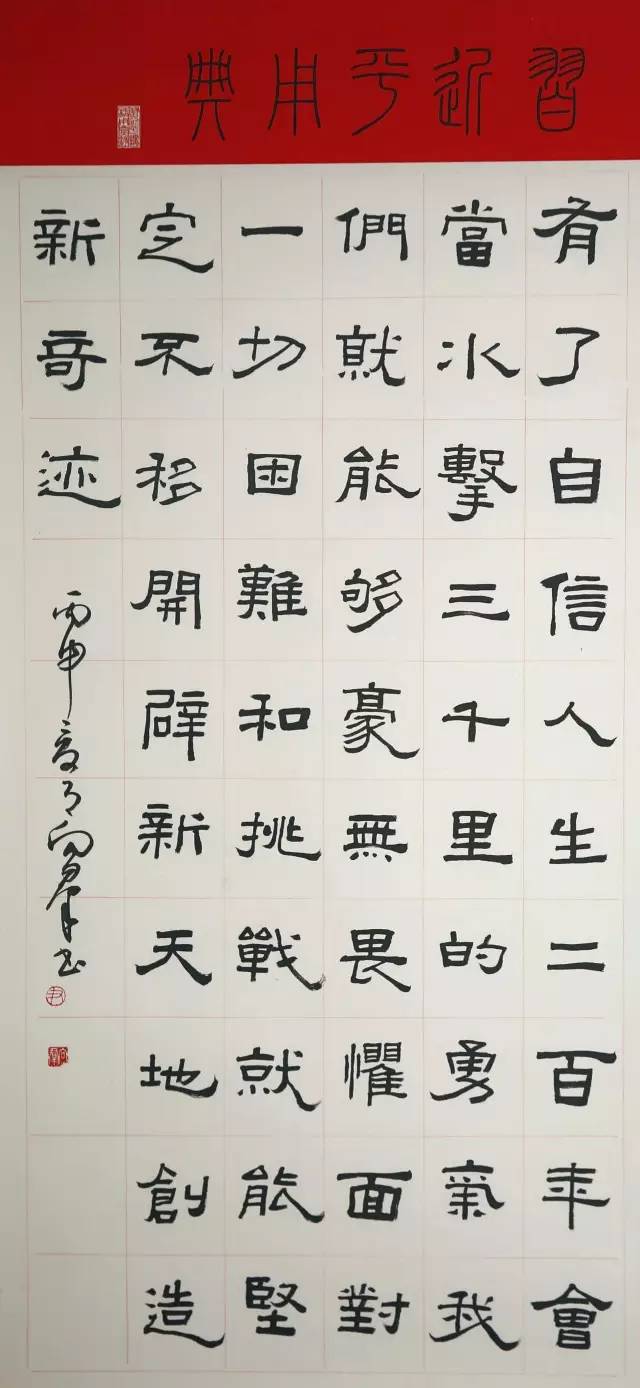 習近平用典
有了自信人生二百年會
當水擊三千里的勇氣我
們就能够豪無畏懼面對
一切困難和挑戰就能堅
定不移開辟新天地創造
新奇迹
丙申夏月向羣书